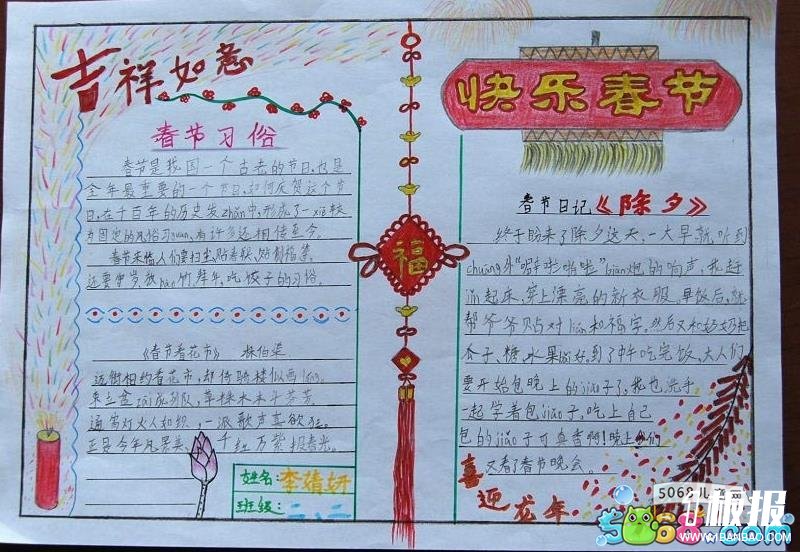 吉祥如意
春节习俗
春节是我国一个古老的节日,也是
全年最重要的一个节日,如何庆贺这个节
日,在千百年的历史发zhǎn中,形成了一xiē较
为固定的风俗习guàn,有许多还相传至今。
春节来临人们要扫尘,贴春联、贴
还要守岁,放 竹,拜年,吃饺子的习俗。
《春节看花市》 林伯渠
迈街相约看花市,却倚骑楼似
成列队,草株木本斗芬芳。
通宵灯火人如织,一派歌声喜欲狂。
正是今年风景美,千红万紫报春光。
姓名:李婧妍
班级:二、二
福
快乐春节
春节日记《除夕》
终于盼来了除夕这天,一大早就听到
chuāng外“噼啦啪啦”biān炮的响声,我赶
jǐn起床,穿上漂亮的新衣服。早饭后,就
帮爷爷贴对lián和福字。然后又和奶奶把
瓜子、糖、水果bǎi好,到了中午吃完饭,大人们
要开始包晚上的jiǎo子了,我也洗手
一起学着包jiǎo子,吃上自己
包的jiǎo子可真香啊!晚上我们
又看了春节晚会。
喜迎龙年
5068儿童网
5068.com
板报
WWW.1BANBAO.COM